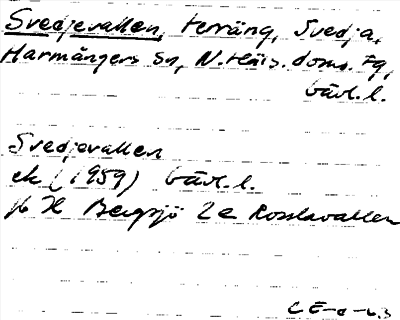 Svedjevallen, terräng, Svedja,
Harmångers sn, N. Häls. doms. Fg,
Gävl. l.
Svedjevallen
ek (1959) Gävl. l.
Bergsjö 2e Rosslavallen